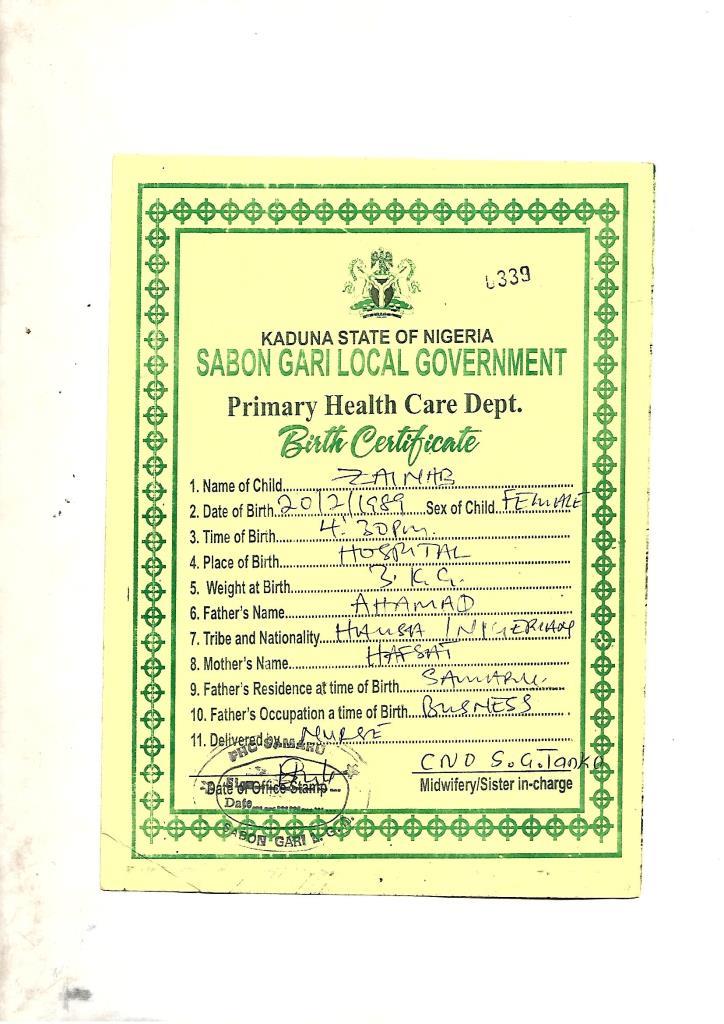 0339
KADUNA STATE OF NIGERIA
SABON GARI LOCAL GOVERNMENT
Primary Health Care Dept.
Birth Certificate
1. Name of Child ZAINAB
2. Date of Birth 20/2/1989 Sex of Child FEMALE
3. Time of Birth 4:30pm.
4. Place of Birth HOSPITAL
5. Weight at Birth 3 K.G.
6. Father's Name AHAMAD
7. Tribe and Nationality HAUSA / NIGERIAN
8. Mother's Name HAFSAT
9. Father's Residence at time of Birth SAMARU.
10. Father's Occupation a time of Birth BUSNESS
11. Delivered by NURSE
PHC SAMARU
CNO S.G. Tanko
Sign
Date of Office Stamp
Midwifery/Sister in-charge
Date
SABON GARI L.G.A.